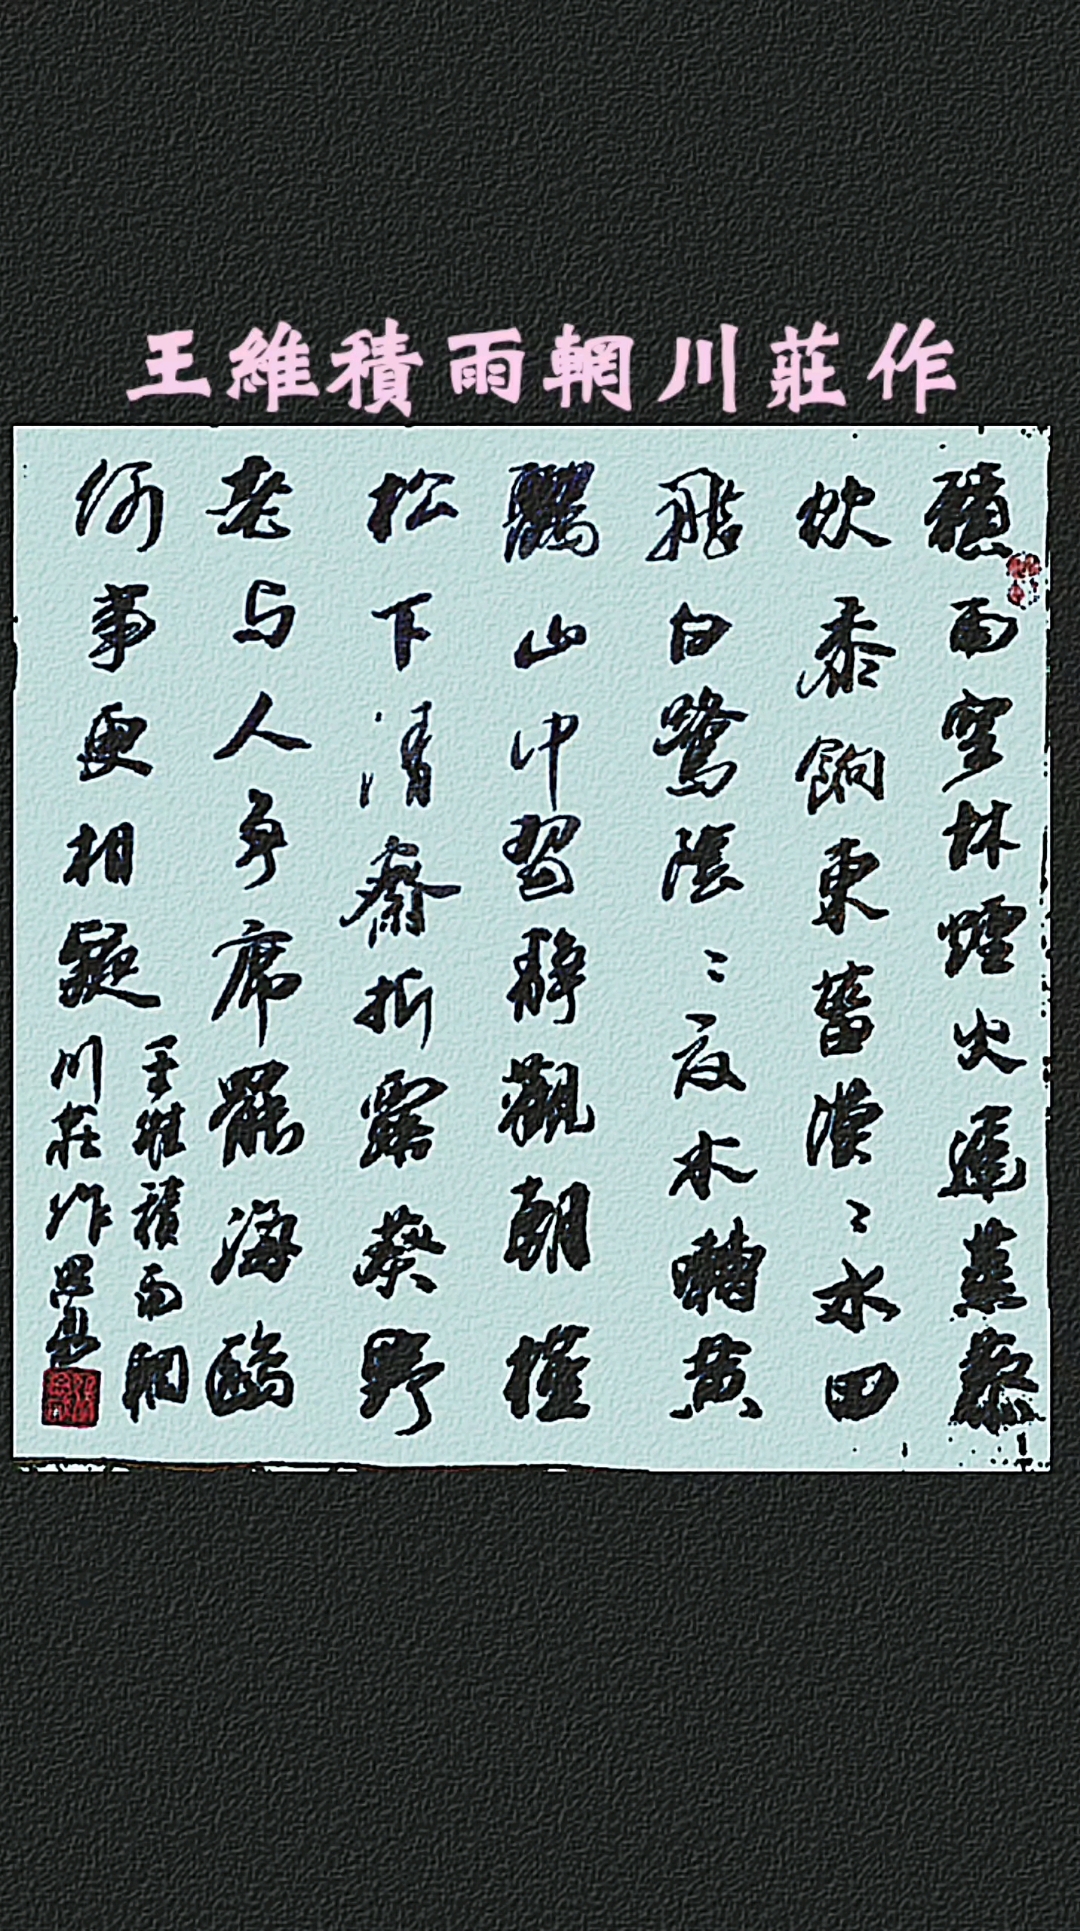 王維積雨輞川莊作
積雨空林煙火遲蒸藜
炊黍餉東菑漠〻水田
飛白鷺陰〻夏木囀黃
鸝山中習靜觀朝槿
松下清齋折露葵野
老与人爭席罷海鷗
何事更相疑
王維積雨輞
川莊作